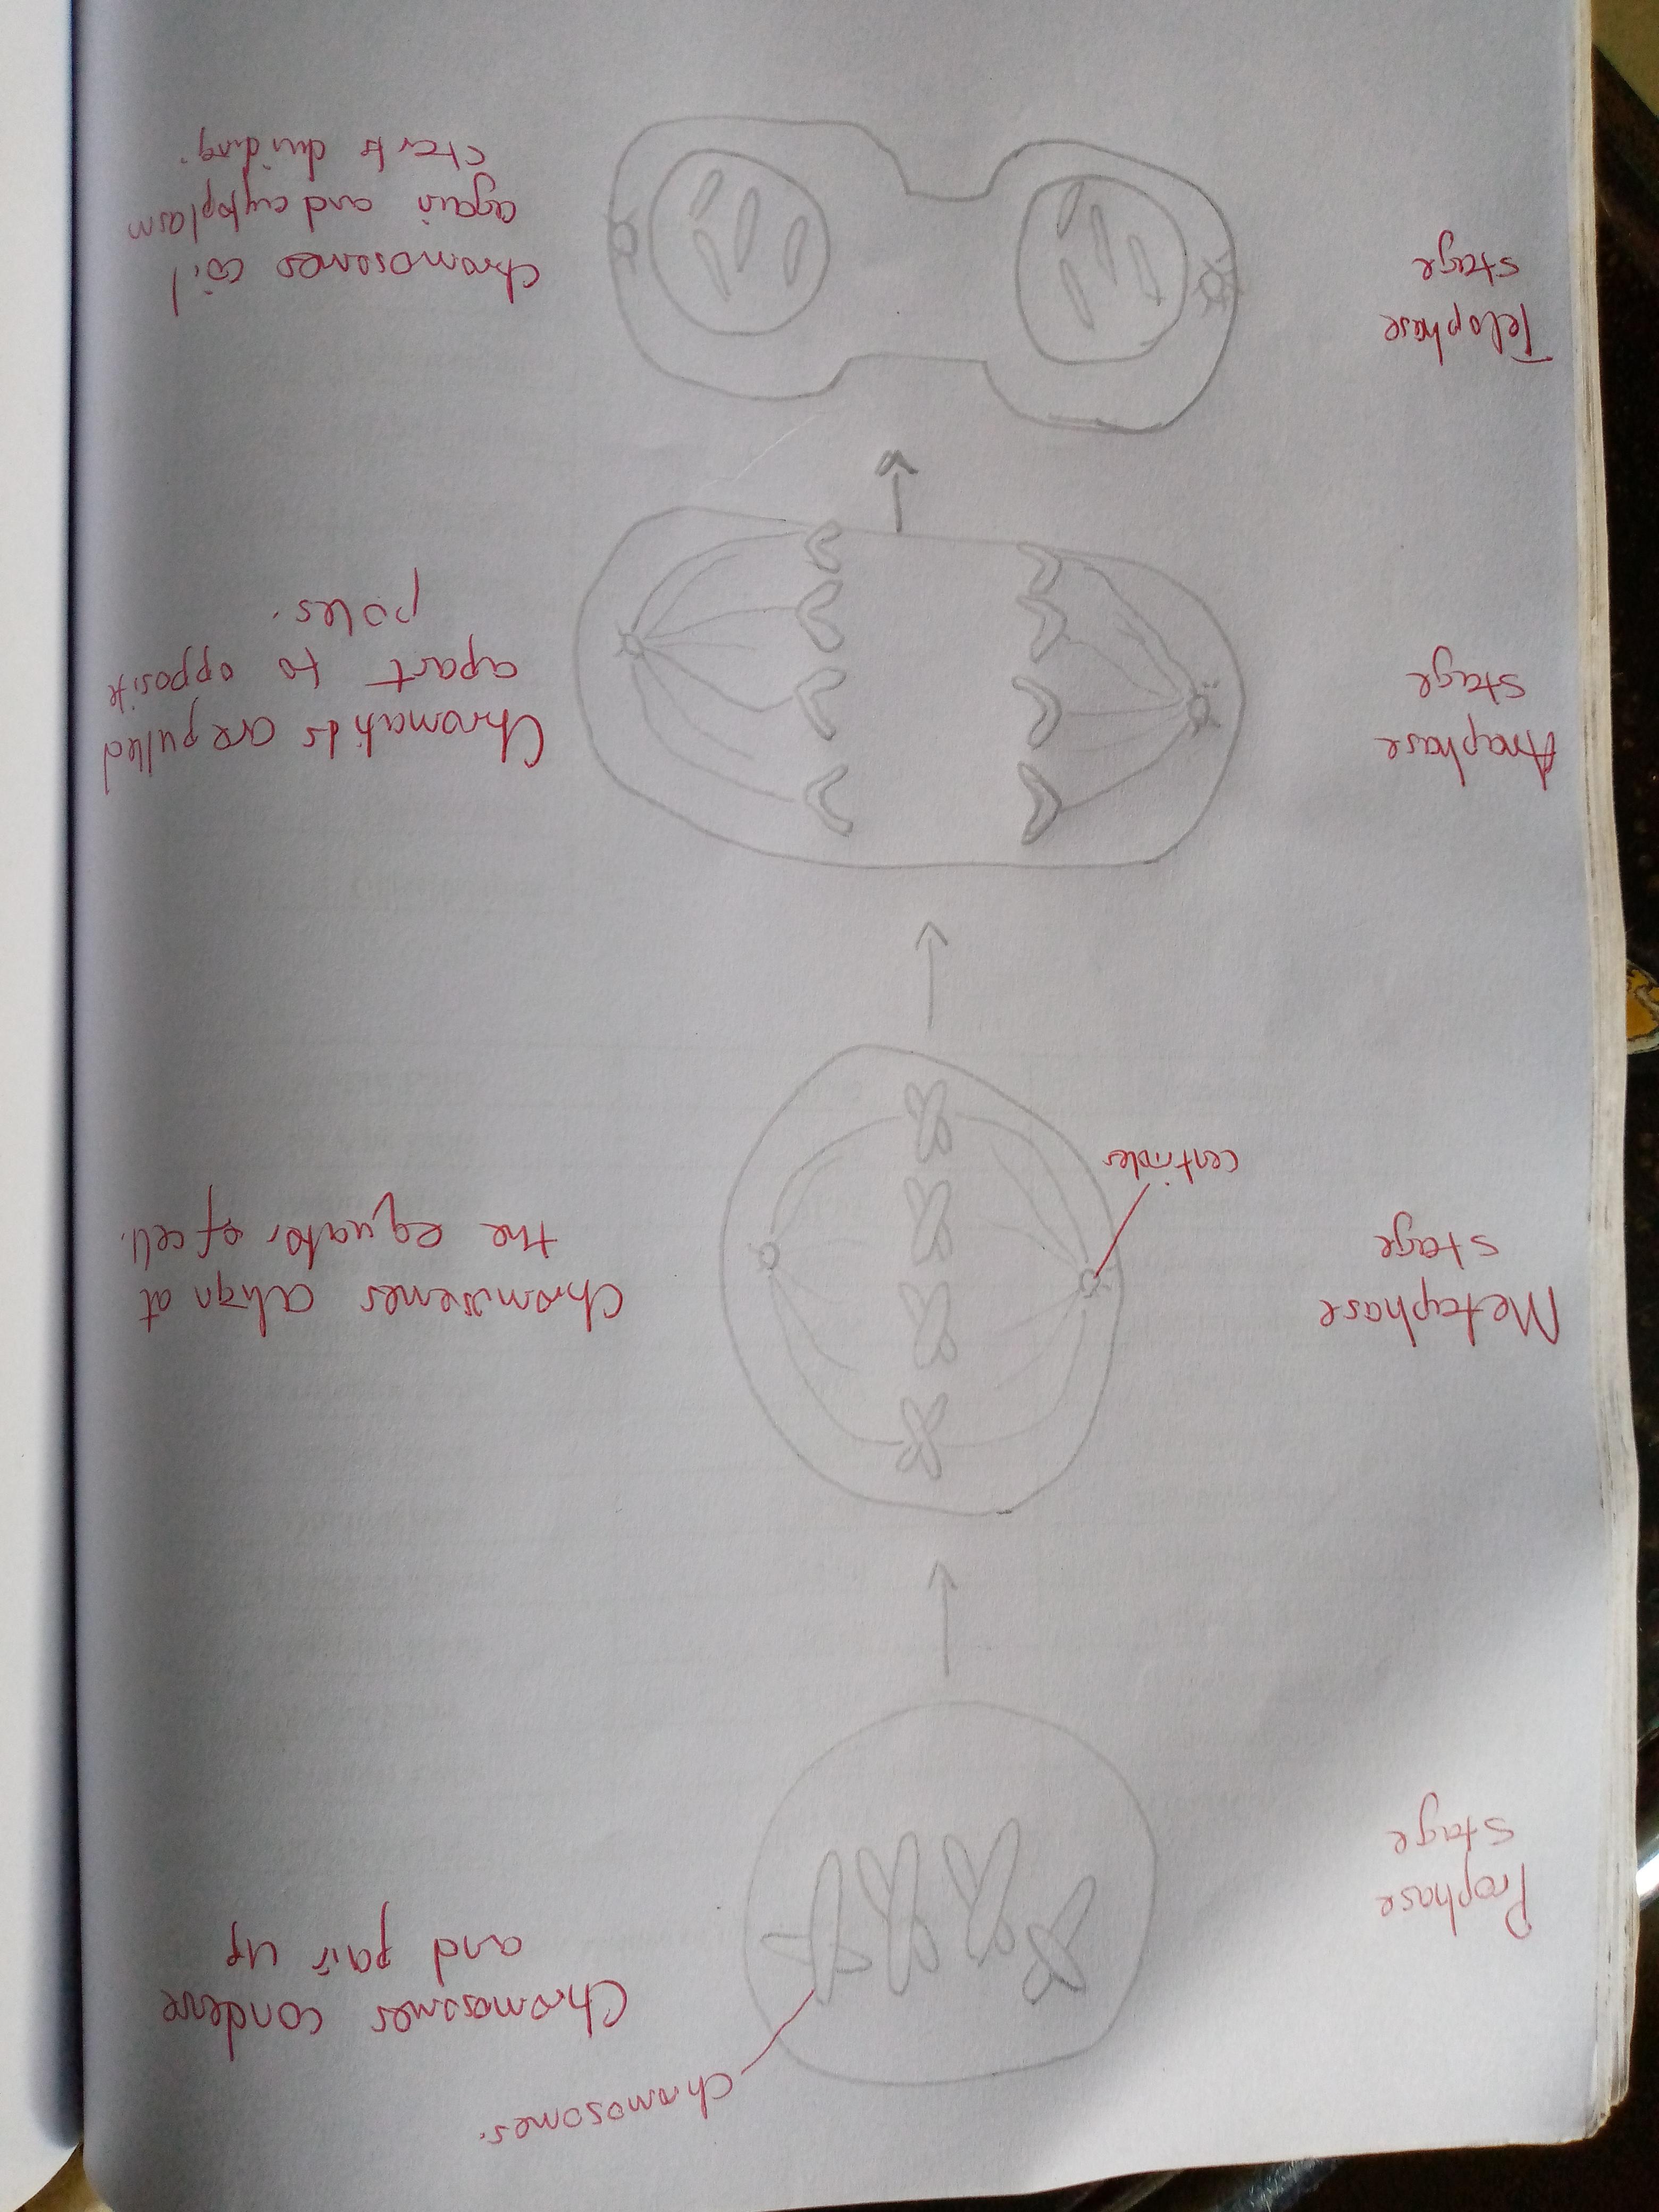 Chromosomes.
Prophase
stage
Chromosomes condense
and pair up
Metaphase
stage
centrioles
Chromosomes align at
the equator of cell.
Anaphase
stage
Chromatids are pulled
apart to opposite
poles.
Telophase
stage
Chromosomes coil
again and cytoplasm
starts dividing.